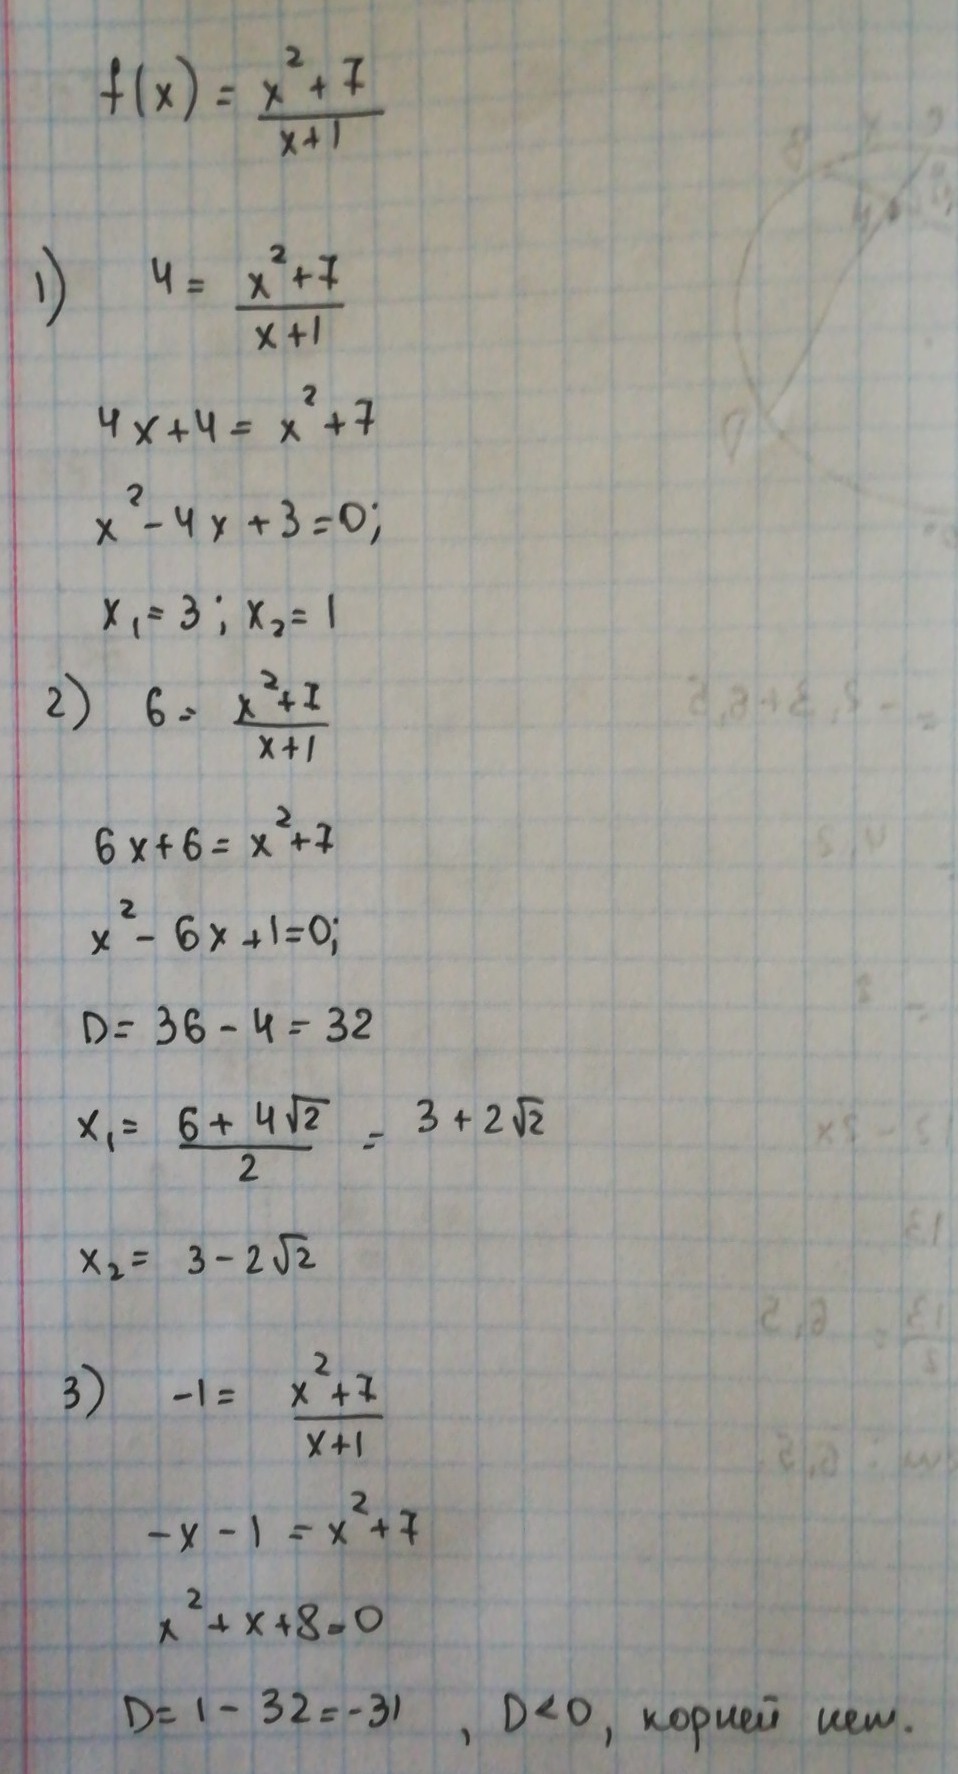 f(x) = (x²+7)/(x+1)
1) 4 = (x²+7)/(x+1)
4x+4 = x²+7
x²-4x+3=0;
x₁=3; x₂=1
2) 6 = (x²+7)/(x+1)
6x+6 = x²+7
x²-6x+1=0;
D= 36-4=32
x₁= (6+4√2)/2 = 3+2√2
x₂= 3-2√2
3) -1= (x²+7)/(x+1)
-x-1 = x²+7
x²+x+8=0
D=1-32=-31, D<0, корней нет.